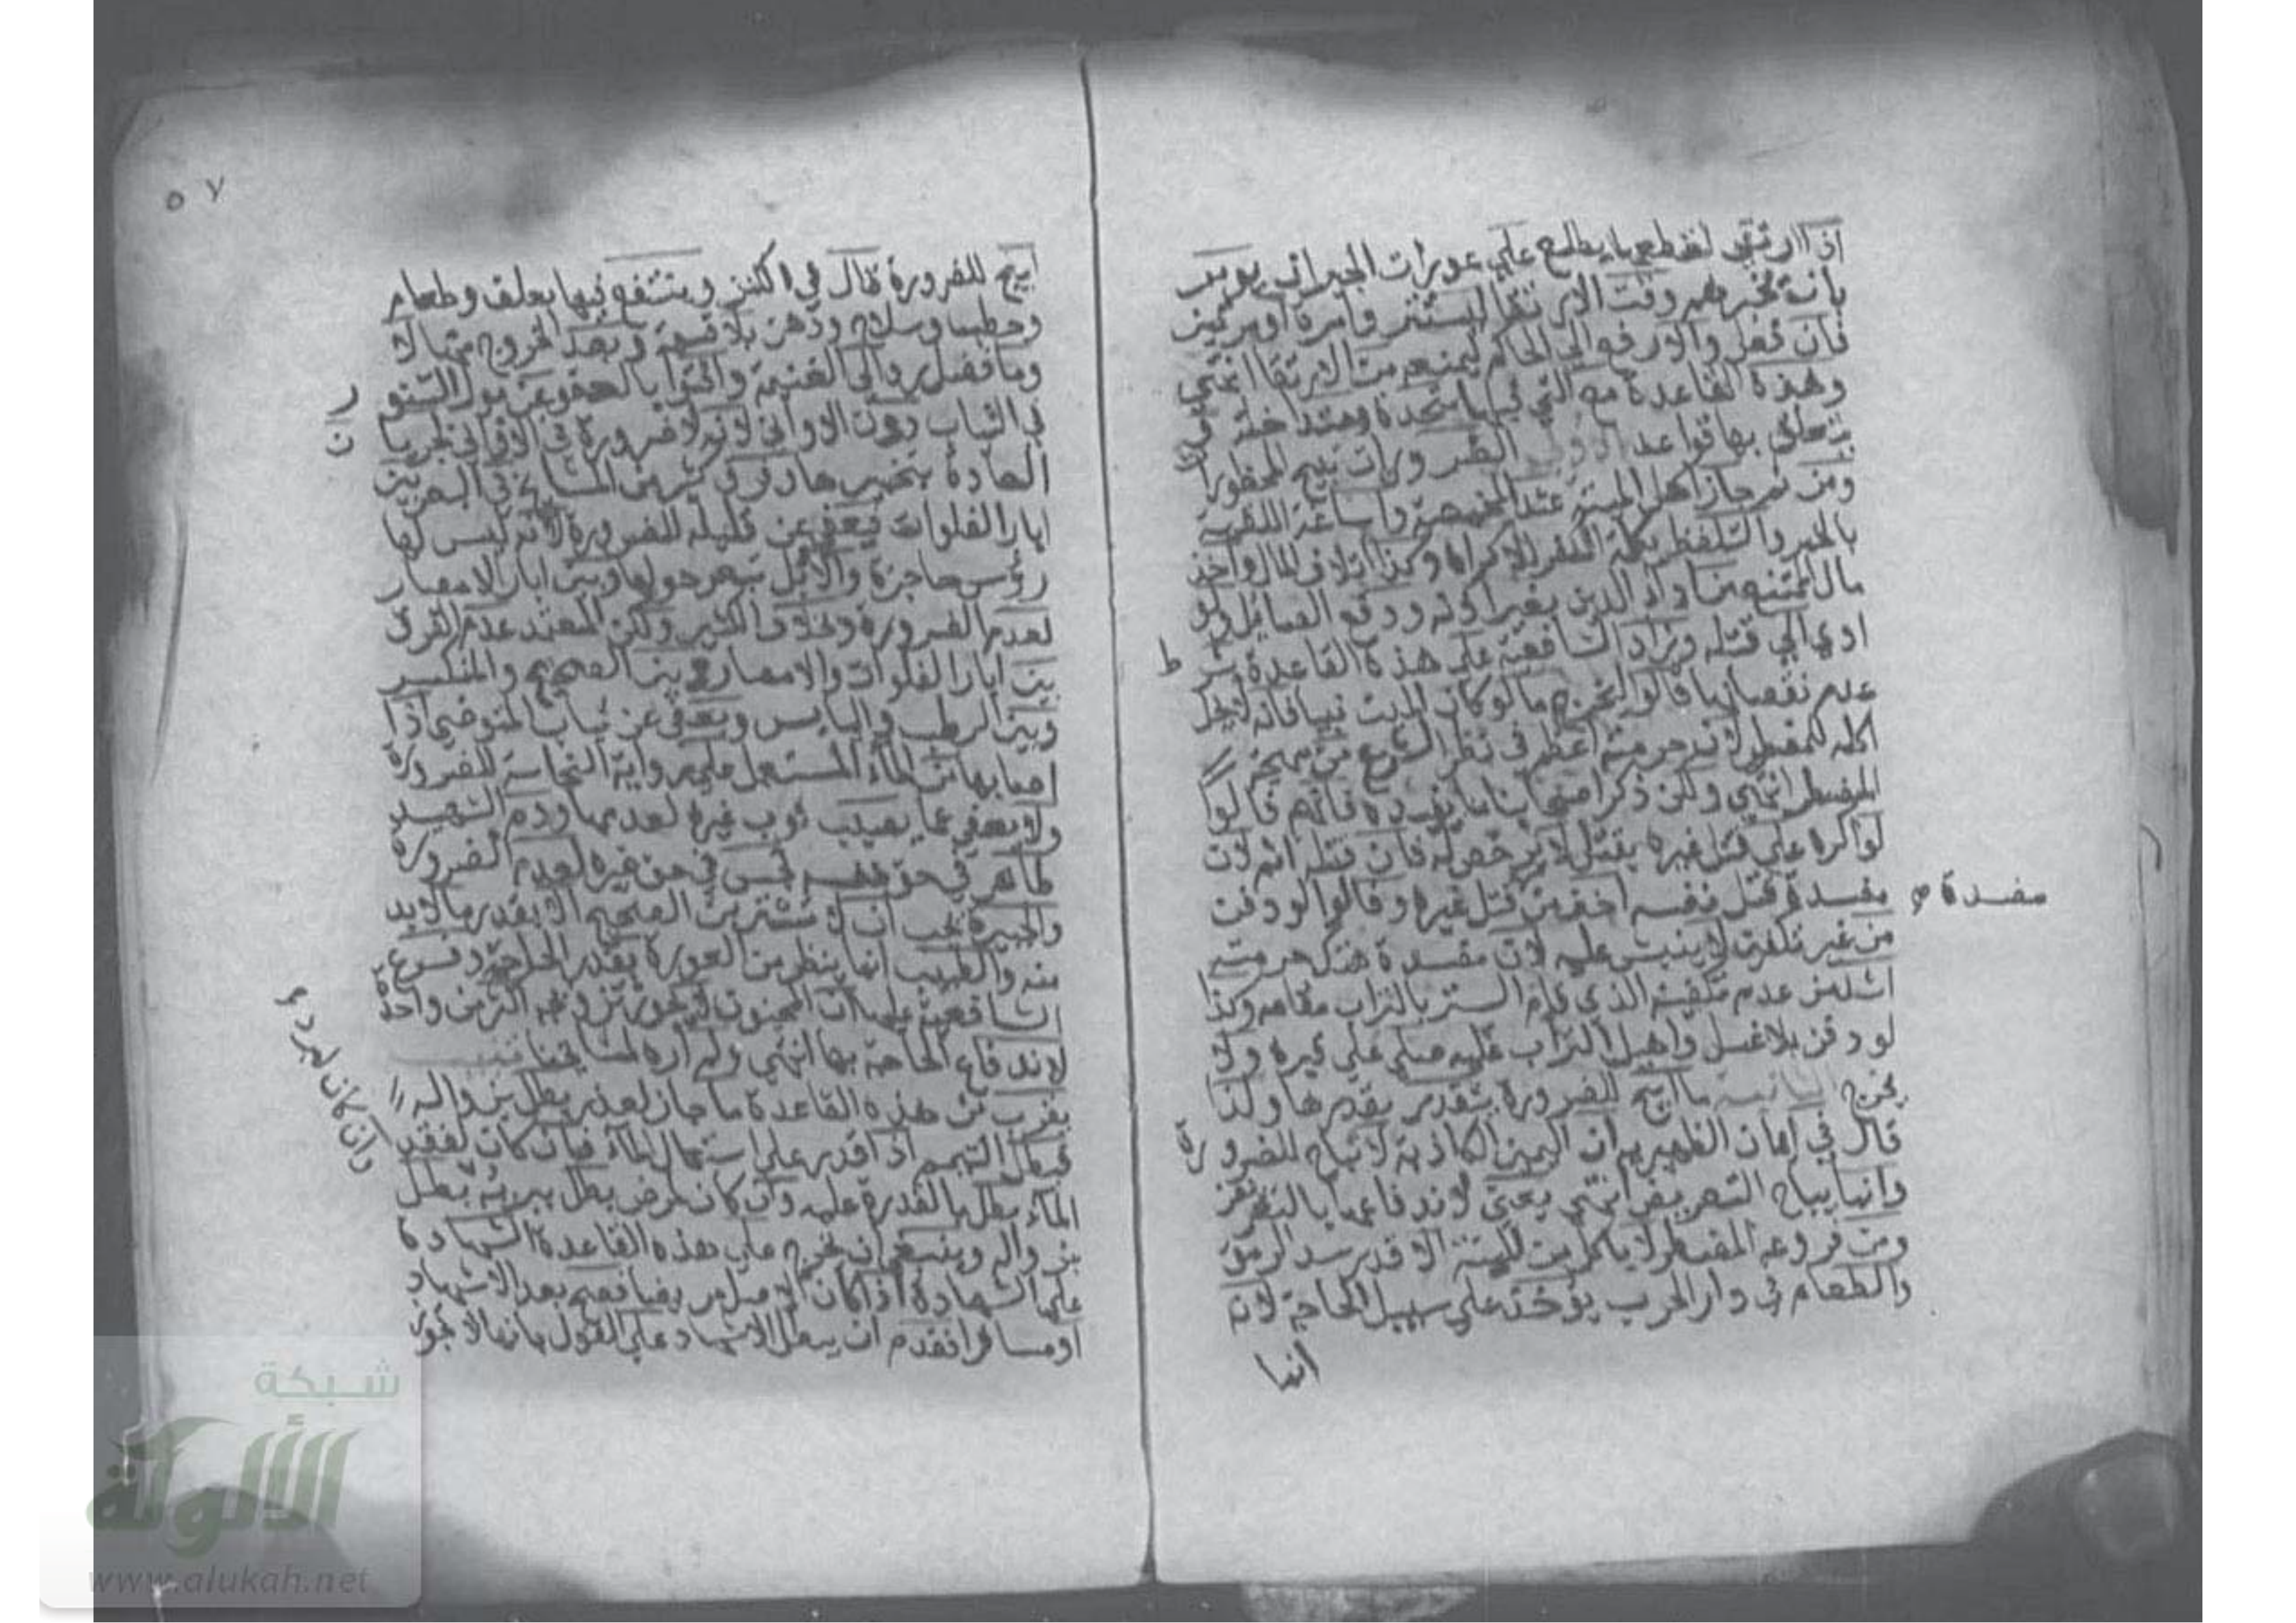 اذا ارتقى لقطعها يطلع على عورات الجيران يومر
بانه يخبرهم وقت الارتقا ليستتر وامرة او مرتين
فان فعل والا رفع الى الحاكم ليمنعه من الارتقا انتهى
وهذه القاعدة مع التي قبلها متحدة ومتداخلة و
يتعلق بها قواعد الاولى الضرورات تبيح المحظورات
ومن ثم جاز اكل الميتة عند المخمصة واساغة اللقمة
بالخمر والتلفظ بكلمة الكفر للاكراه وكذا اتلاف المال واخذ
مال الممتنع من اداء الدين بغير اذنه ودفع الصايل ولو
ادى الى قتله وزاد الشافعية على هذه القاعدة بشرط
عدم نقصانها قالوا ليخرج ما لو كان الميت نبيا فانه لا يحل
اكله للمضطر لان حرمته اعظم في نظر الشرع من مهجة
المضطر انتهى ولكن ذكر اصحابنا ما يفيده فانهم قالوا
لو اكره على قتل غيره بقتل لا يرخص له فان قتله اثم لان
مفسدة قتل نفسه اخف من قتل غيره وقالوا لو دفن
مفسدة صح
من غير تكفين لا ينبش عليه لان مفسدة هتك حرمته
اشد من عدم تكفينه الذي قام الستر بالتراب مقامه وكذا
لو دفن بلا غسل واهيل التراب عليه صلي على قبره ولا
يخرج الثانية ما ابيح للضرورة يتقدر بقدرها ولذا
قال في ايمان الظهيرية ان اليمين الكاذبة لا تباح للضرورة
وانما يباح التعريض انتهى يعني لاندفاعها بالتعريض
ومن فروعه المضطر لا ياكل من الميتة الا قدر سد الرمق
والطعام في دار الحرب يؤخذ على سبيل الحاجة لانه
انما
٥٧
ابيح للضرورة قال في الكنز وينتفع فيها بعلف وطعام
وحطب وسلاح ودهن بلا قسمة وبعد الخروج منها لا
وما فضل رد الى الغنيمة وافتوا بالعفو عن بول السنور
في الثياب دون الاواني لانه لا ضرورة في الاواني لجريان
العادة بتخميرها وفرق كثير من المشايخ في البعر بين
ابار الفلوات فيعفى عن قليله للضرورة لانه ليس لها
رؤس حاجزة والابل تبعر حولها وبين ابار الامصار
لعدم الضرورة بخلاف الكثير ولكن المعتمد عدم الفرق
بين ابار الفلوات والامصار وبين الصحيح والمنكسر
وبين الرطب واليابس ويعفى عن ثياب المتوضي اذا
اصابها من الماء المستعمل على رواية النجاسة للضرورة
ولا يعفى عما يصيب ثوب غيره لعدمها ودم الشهيد
طاهر في حق نفسه نجس في حق غيره لعدم الضرورة
والجبيرة يجب ان لا تستر من الصحيح الا بقدر ما لا بد
منه والطبيب انما ينظر من العورة بقدر الحاجة وفرع
الشافعية عليها ان المجنون لا يجوز تزويجه اكثر من واحدة
لاندفاع الحاجة بها انتهى ولم اره لمشايخنا
يقرب من هذه القاعدة ما جاز لعذر بطل بزواله
فبطل التيمم اذا قدر على استعمال الماء فان كان لفقد
الماء بطل بالقدرة عليه وان كان لمرض بطل ببرئه بطل
وان كان لبرد
بزواله وينبغي ان تخرج على هذه القاعدة الشهادة
على الشهادة اذا كان الاصل مريضا فصح بعد الاشهاد
او مسافرا فقدم ان يبطل الاشهاد على القول بانها لا تجوز
شبكة
الألوكة
www.alukah.net